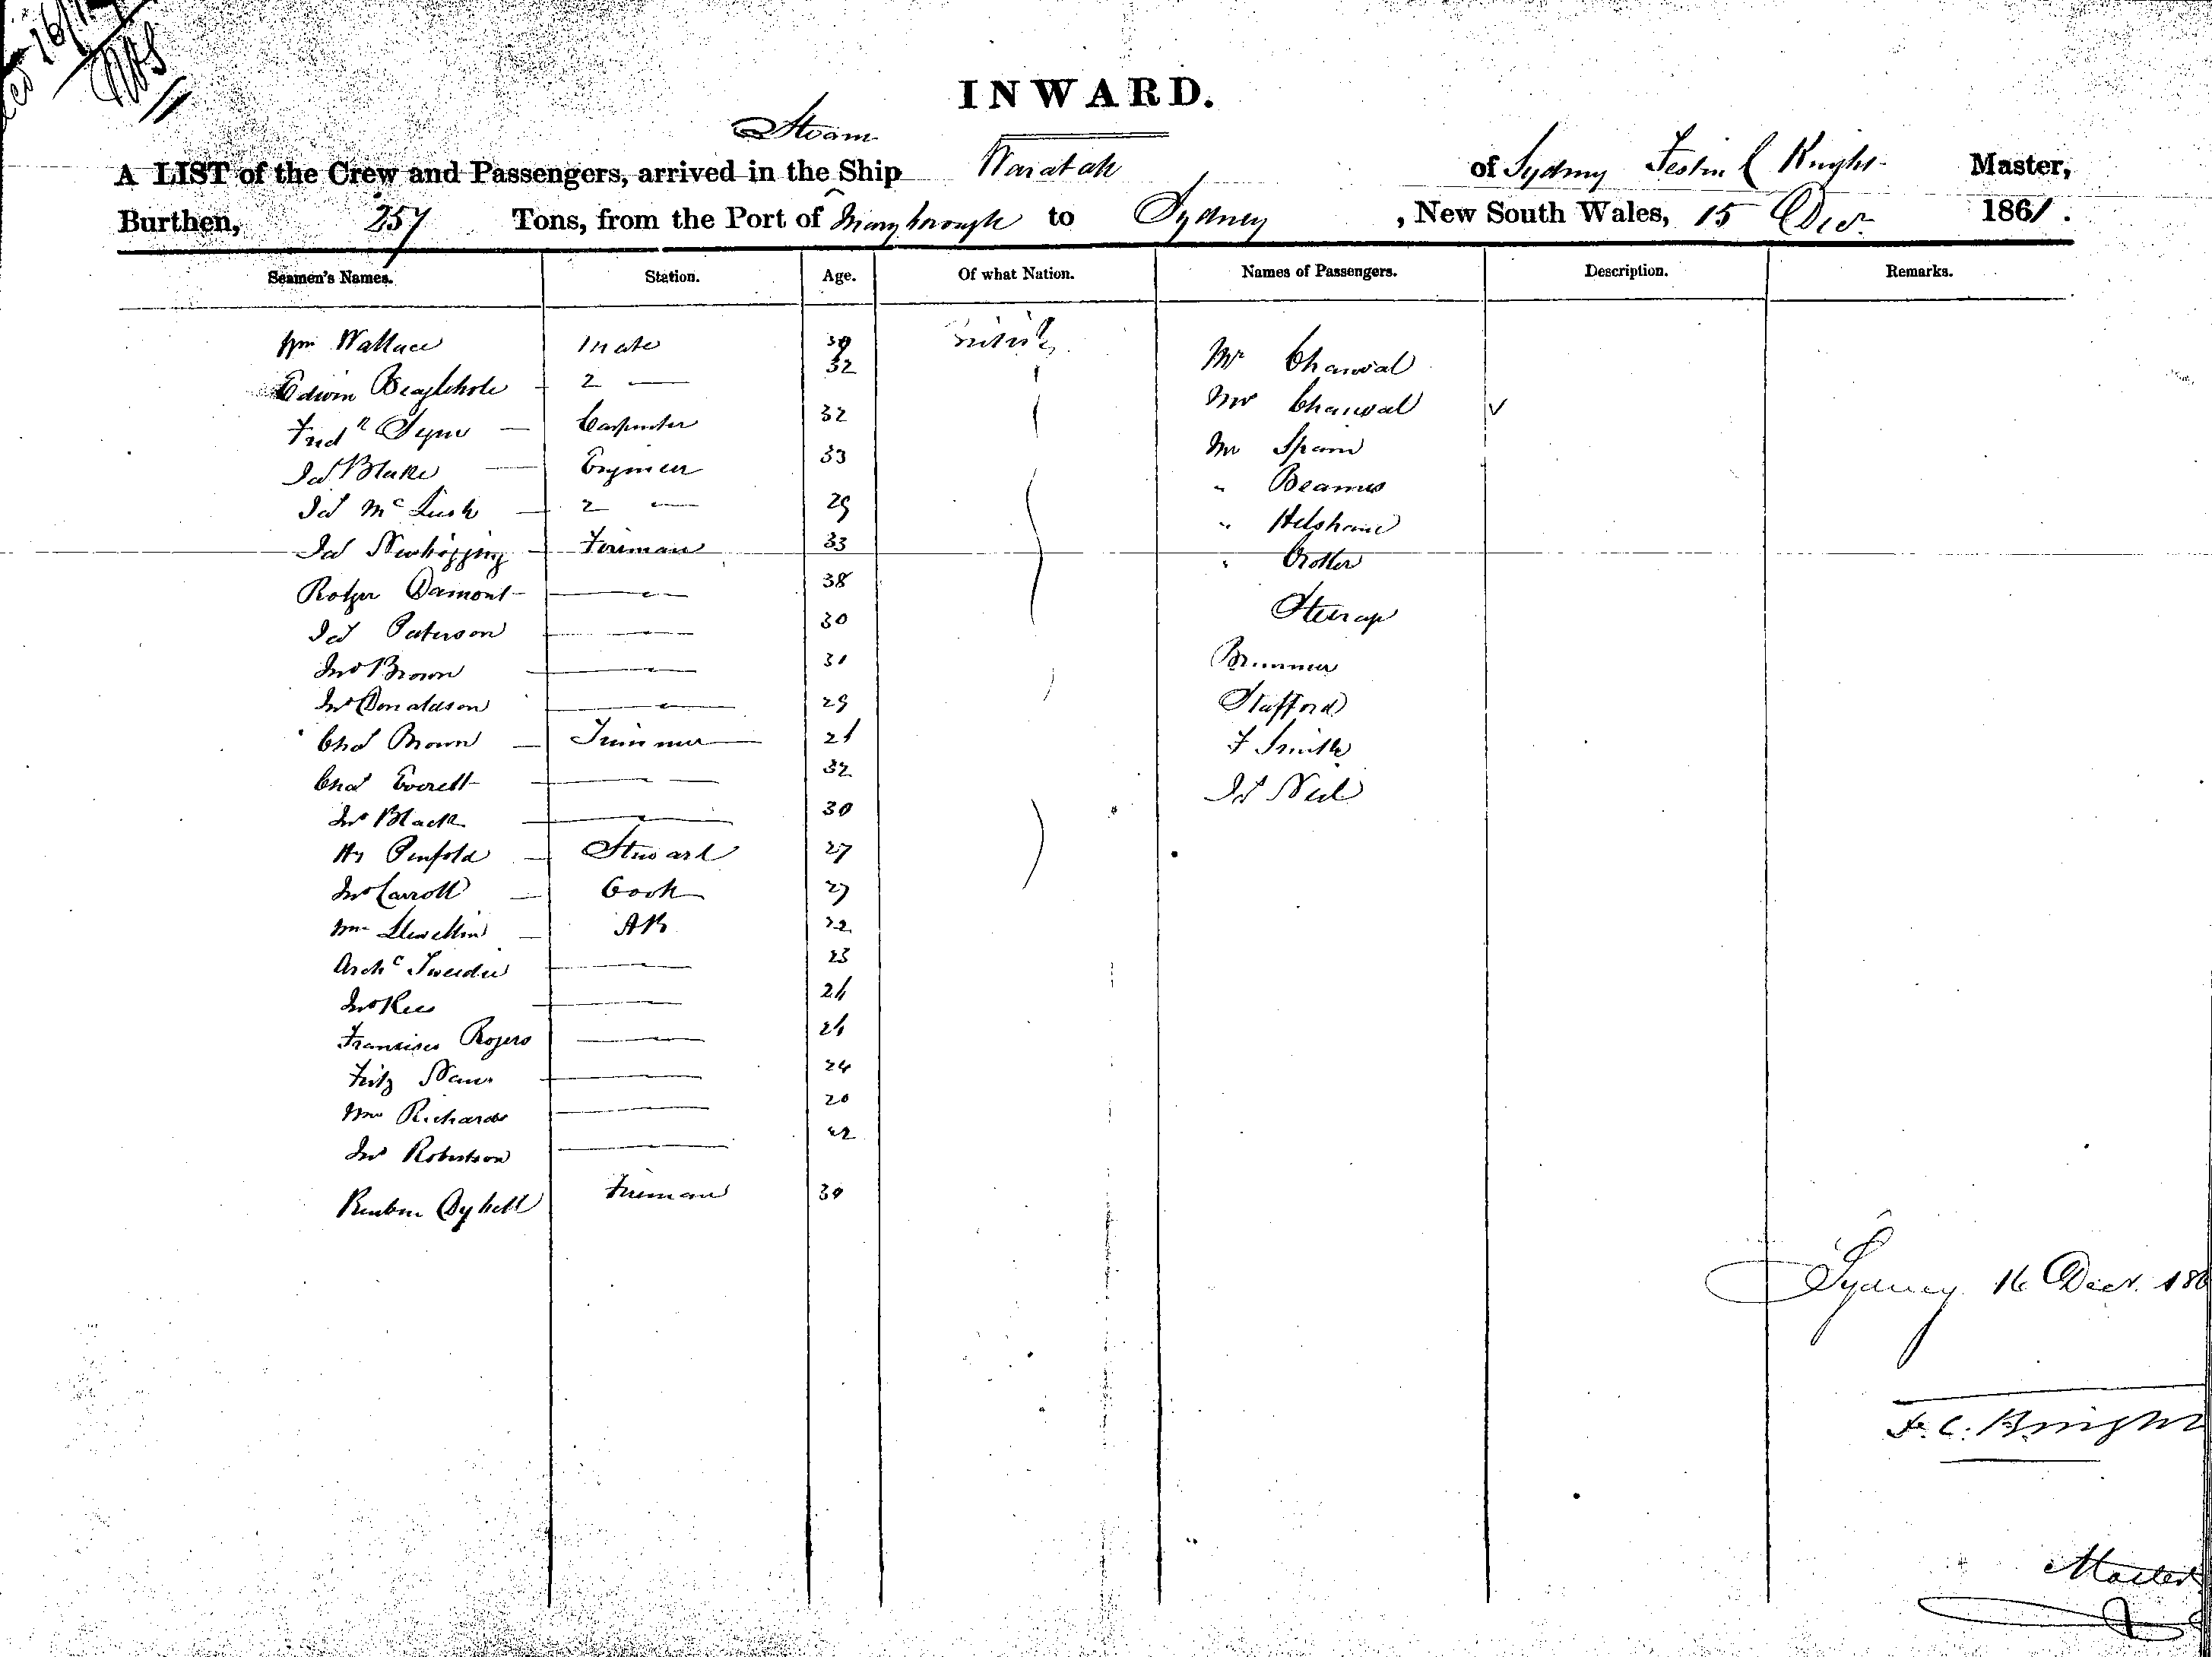 INWARD.
Steam
A LIST of the Crew and Passengers, arrived in the Ship Waratah of Sydney Knight Master,
Burthen, 257 Tons, from the Port of Maryborough to Sydney, New South Wales, 15 Decr 1861.
Seamen's Names. Station. Age. Of what Nation. Names of Passengers. Description. Remarks.
Wm Wallace Mate 39 British Mr Charval
Edwin Beaglehole 2 — 32 Mrs Charval
Fredk Syme Carpenter 32 Mr Spain
Jas Blake Engineer 33 " Beames
Jas McLusk 2 — 29 "
Jas Newbigging Fireman 33 "
Damont 38
Jas Paterson 30
Jno Brown 31
Jno Donaldson 29 Stafford
Chas Brown Trimmer 21 F Smith
Chas Everett 32 Js Neil
Jno Black 30
Hy Penfold Steward 27
Jno Carroll Cook 27
Wm Llewellin AB 22
Archd Tweedie 23
Jno Rees 24
Rogers 24
Fritz 24
Wm Richards 20
Jno Robertson 42
Reuben Fireman 30
Sydney 16 Decr. 186
F. C. Knight
Master